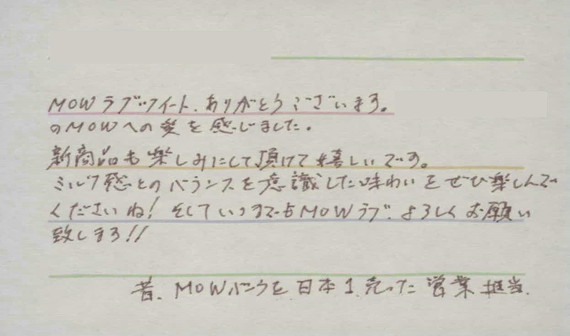 MOWラブツイート、ありがとうございます。
のMOWへの愛を感じました。
新商品も楽しみにして頂けて嬉しいです。
ミルク感とのバランスを意識した味わいをぜひ楽しんで
くださいね！そしていつまでもMOWラブ、よろしくお願い
致します!!
昔、MOWバニラを日本1売った営業担当